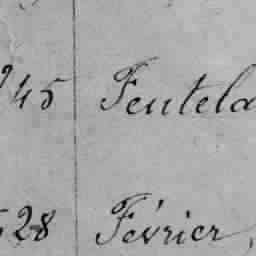 245 Fentela
528 Février,